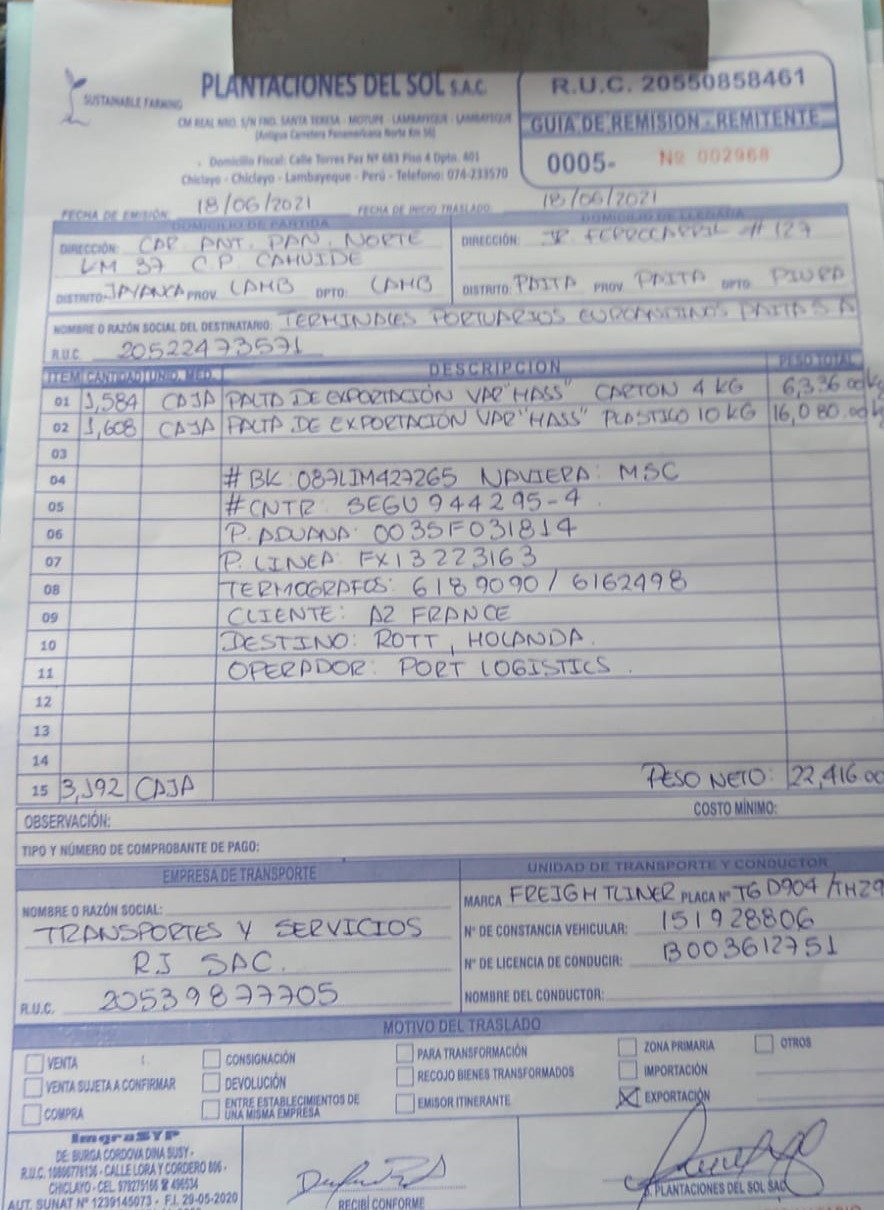 SUSTAINABLE FARMING
PLANTACIONES DEL SOL S.A.C.
CM REAL NRO. S/N FND. SANTA TERESA - MOTUPE - LAMBAYEQUE - LAMBAYEQUE
(Antigua Carretera Panamericana Norte Km 56)
- Domicilio Fiscal: Calle Torres Paz Nº 683 Piso 4 Dpto. 401
Chiclayo - Chiclayo - Lambayeque - Perú - Telefono: 074-233570
R.U.C. 20550858461
GUIA DE REMISION - REMITENTE
0005- Nº 002968
FECHA DE EMISIÓN: 18/06/2021 FECHA DE INICIO TRASLADO: 18/06/2021
DOMICILIO DE PARTIDA DOMICILIO DE LLEGADA
DIRECCIÓN: CAR. ANT. PAN. NORTE
KM 37 C.P. CAHUIDE
DISTRITO: JAYANCA PROV LAMB DPTO: LAMB
DIRECCIÓN: JR. FERROCARRIL # 127
DISTRITO: PAITA PROV PAITA DPTO: PIURA
NOMBRE O RAZÓN SOCIAL DEL DESTINATARIO: TERMINALES PORTUARIOS EUROANDINOS PAITA S.A
R.U.C. 20522473571
ITEM CANTIDAD UNID. MED. DESCRIPCION PESO TOTAL
01 1,584 CAJA PALTA DE EXPORTACIÓN VAR "HASS" CARTON 4 KG 6,336.00 kg
02 1,608 CAJA PALTA DE EXPORTACIÓN VAR "HASS" PLASTICO 10 KG 16,080.00 kg
03
04 # BK: 087LIM427265 NAVIERA: MSC
05 # CNTR: SEGU 944295-4
06 P. ADUANA: 0035F031814
07 P. LINEA: FX13223163
08 TERMOGRAFOS: 6189090 / 6162498
09 CLIENTE: AZ FRANCE
10 DESTINO: ROTT, HOLANDA.
11 OPERADOR: PORT LOGISTICS.
12
13
14
15 3,192 CAJA PESO NETO: 22,416.00
OBSERVACIÓN: COSTO MÍNIMO:
TIPO Y NÚMERO DE COMPROBANTE DE PAGO:
EMPRESA DE TRANSPORTE
NOMBRE O RAZÓN SOCIAL:
TRANSPORTES Y SERVICIOS
RJ SAC.
R.U.C. 20539877705
UNIDAD DE TRANSPORTE Y CONDUCTOR
MARCA FREIGHTLINER PLACA Nº T6D904 /THZ9
Nº DE CONSTANCIA VEHICULAR: 151928806
Nº DE LICENCIA DE CONDUCIR: B003612751
NOMBRE DEL CONDUCTOR:
MOTIVO DEL TRASLADO
VENTA CONSIGNACIÓN PARA TRANSFORMACIÓN ZONA PRIMARIA OTROS
VENTA SUJETA A CONFIRMAR DEVOLUCIÓN RECOJO BIENES TRANSFORMADOS IMPORTACIÓN
COMPRA ENTRE ESTABLECIMIENTOS DE UNA MISMA EMPRESA EMISOR ITINERANTE X EXPORTACIÓN
ImgraSYP
DE: BURGA CORDOVA DINA SUSY -
R.U.C. 10806778136 - CALLE LORA Y CORDERO 806 -
CHICLAYO - CEL. 979275166 ☎ 496534
AUT. SUNAT Nº 1239145073 - F.I. 29-05-2020
RECIBÍ CONFORME
PLANTACIONES DEL SOL SAC